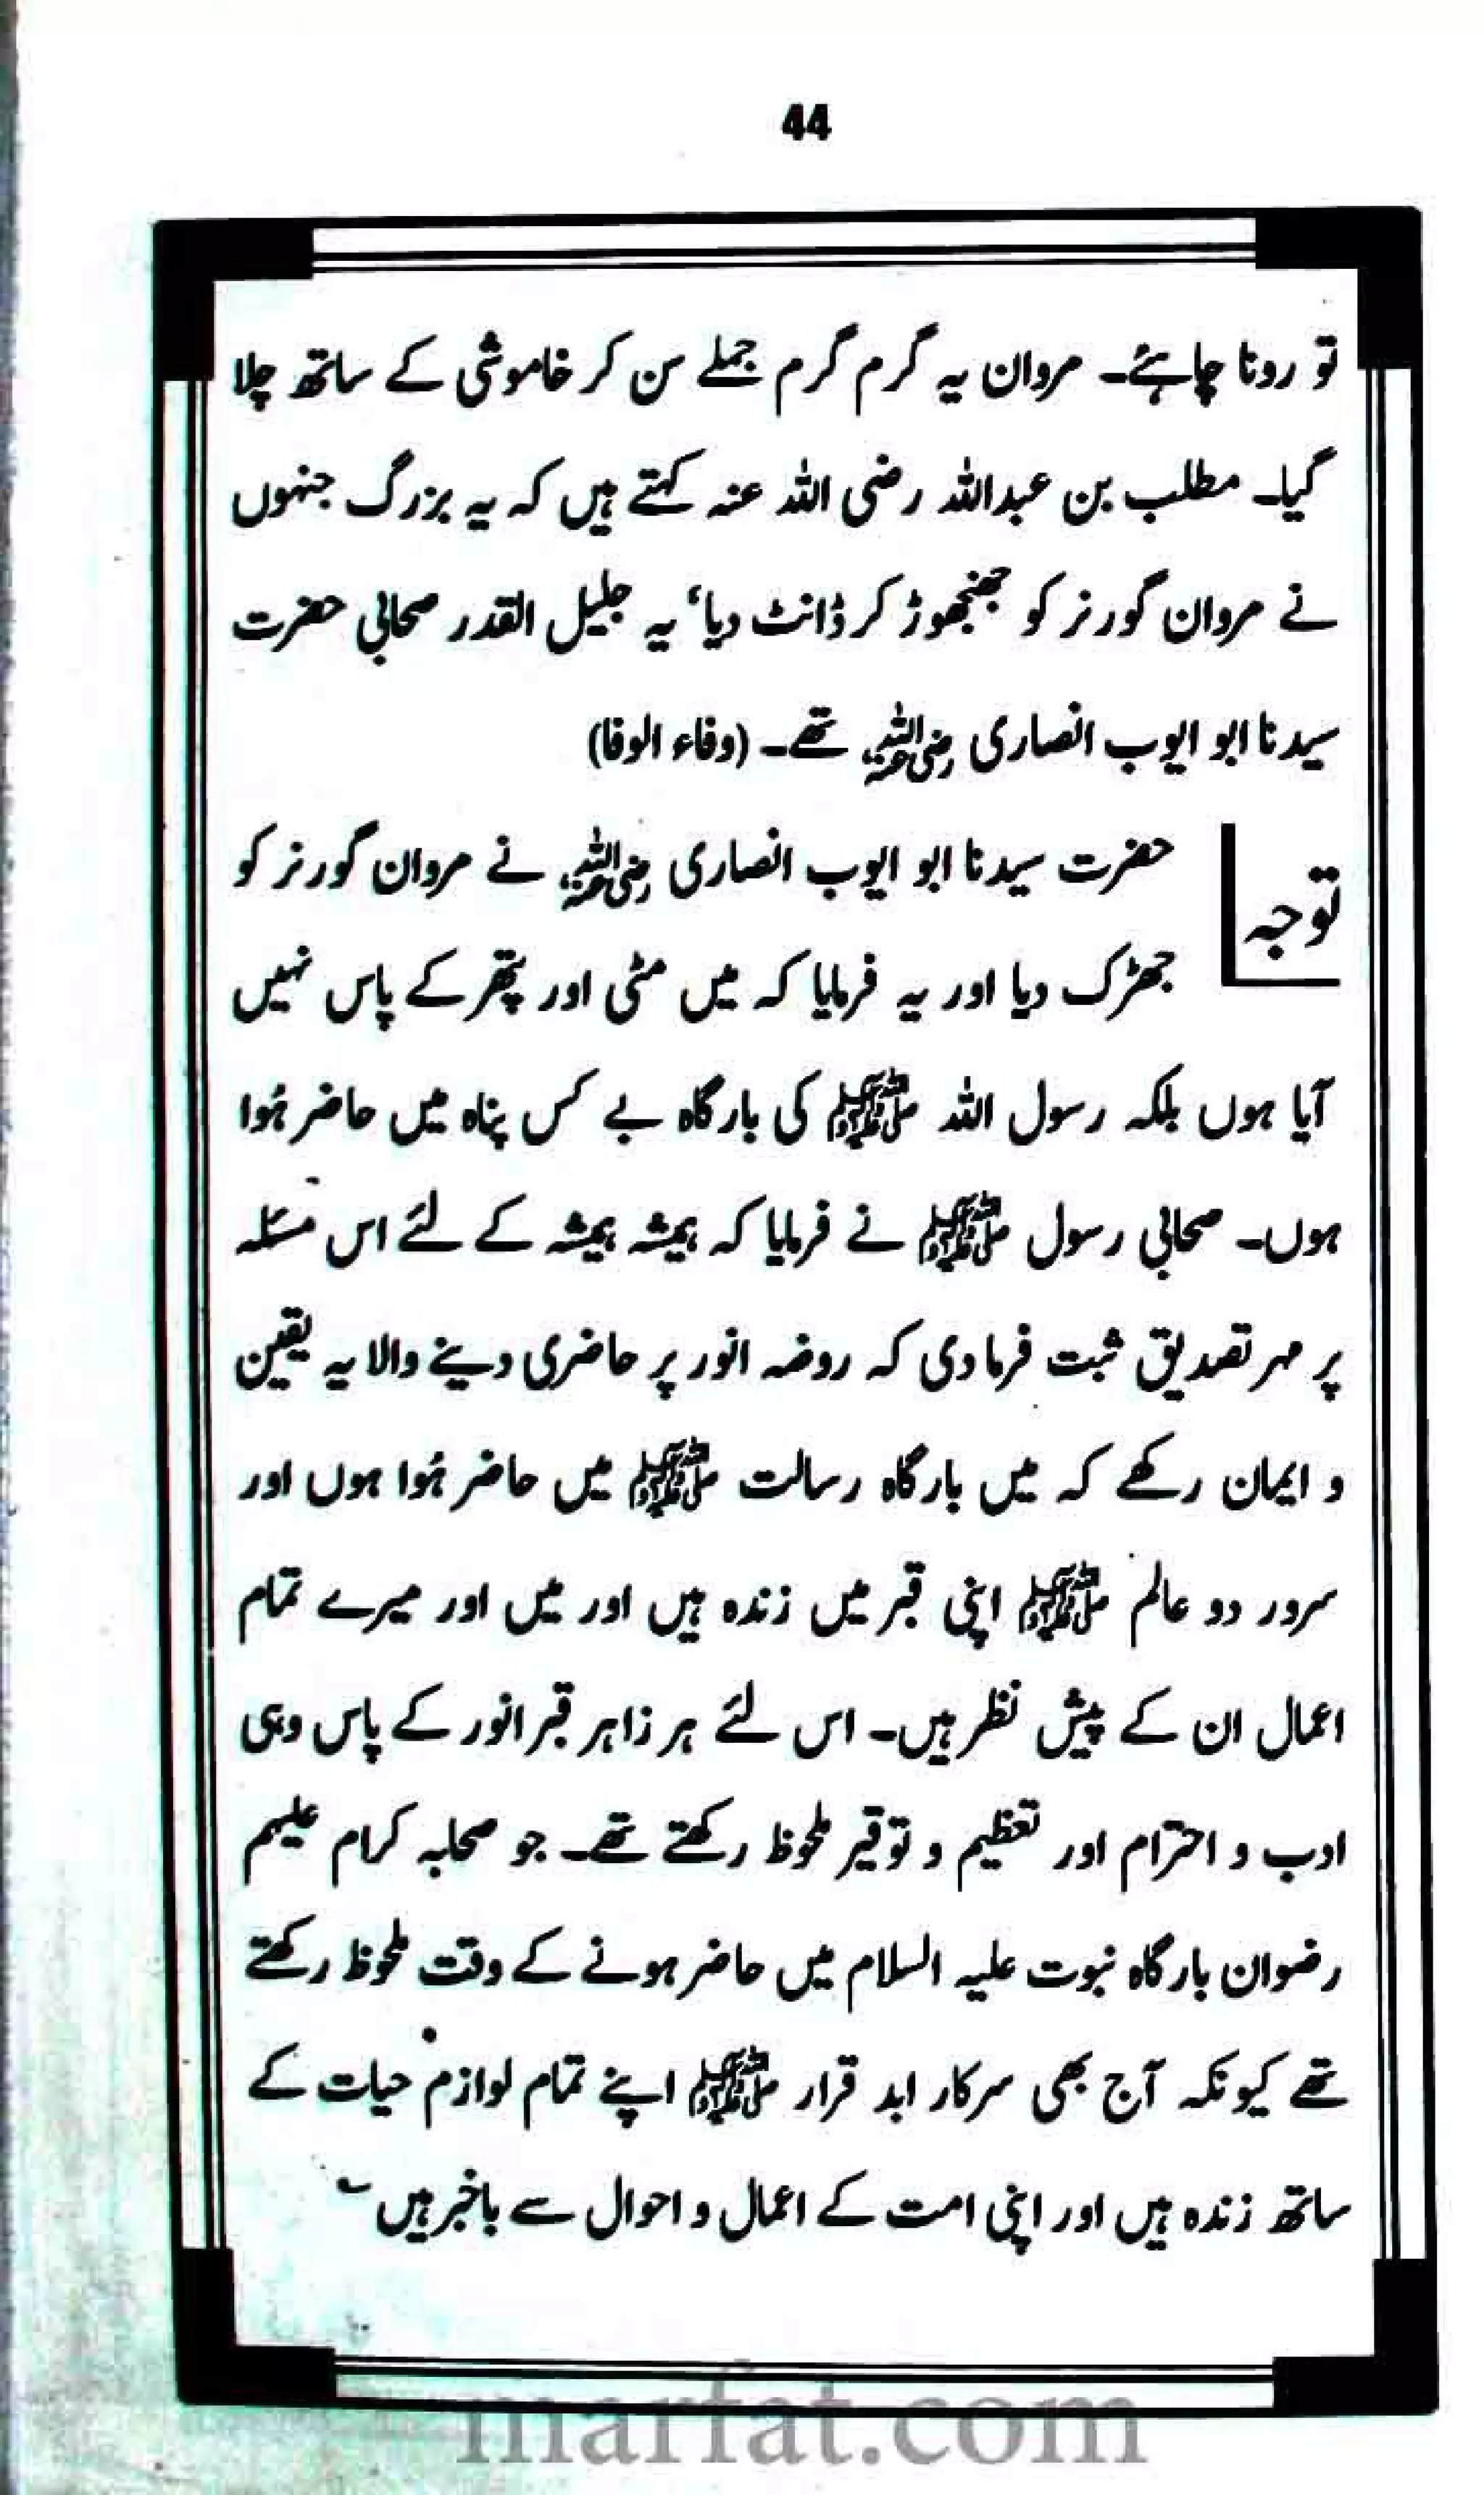 44
تو رونا چاہئے۔ مروان یہ گرم گرم جملے سن کر خاموشی کے ساتھ چلا
گیا۔ مطلب بن عبداللہ رضی اللہ عنہ کہتے ہیں کہ یہ بزرگ جنہوں
نے مروان گورنر کو جھنجھوڑ کر ڈانٹ دیا، یہ جلیل القدر صحابی حضرت
سیدنا ابو ایوب انصاری رضی اللہ عنہ تھے۔ (وفاء الوفا)
توجہ
حضرت سیدنا ابو ایوب انصاری رضی اللہ عنہ نے مروان گورنر کو
جھڑک دیا اور یہ فرمایا کہ میں مٹی اور پتھر کے پاس نہیں
آیا ہوں بلکہ رسول اللہ ﷺ کی بارگاہ بے کس پناہ میں حاضر ہُوا
ہوں۔ صحابی رسول ﷺ نے فرمایا کہ ہمیشہ ہمیشہ کے لئے اس مسئلہ
پر مہر تصدیق ثبت فرما دی کہ روضہ انور پر حاضری دینے والا یہ یقین
و ایمان رکھے کہ میں بارگاہ رسالت ﷺ میں حاضر ہُوا ہوں اور
سرور دو عالم ﷺ اپنی قبر میں زندہ ہیں اور میں اور میرے تمام
اعمال ان کے پیش نظر ہیں۔ اس لئے ہر زاہر قبر انور کے پاس وہی
ادب و احترام اور تعظیم و توقیر ملحوظ رکھتے تھے۔ جو صحابہ کرام علیہم
رضوان بارگاہ نبوت علیہ السلام میں حاضر ہونے کے وقت ملحوظ رکھتے
تھے کیونکہ آج بھی سرکار ابد قرار ﷺ اپنے تمام لوازم حیات کے
ساتھ زندہ ہیں اور اپنی امت کے اعمال و احوال سے باخبر ہیں ؎
marfat.com